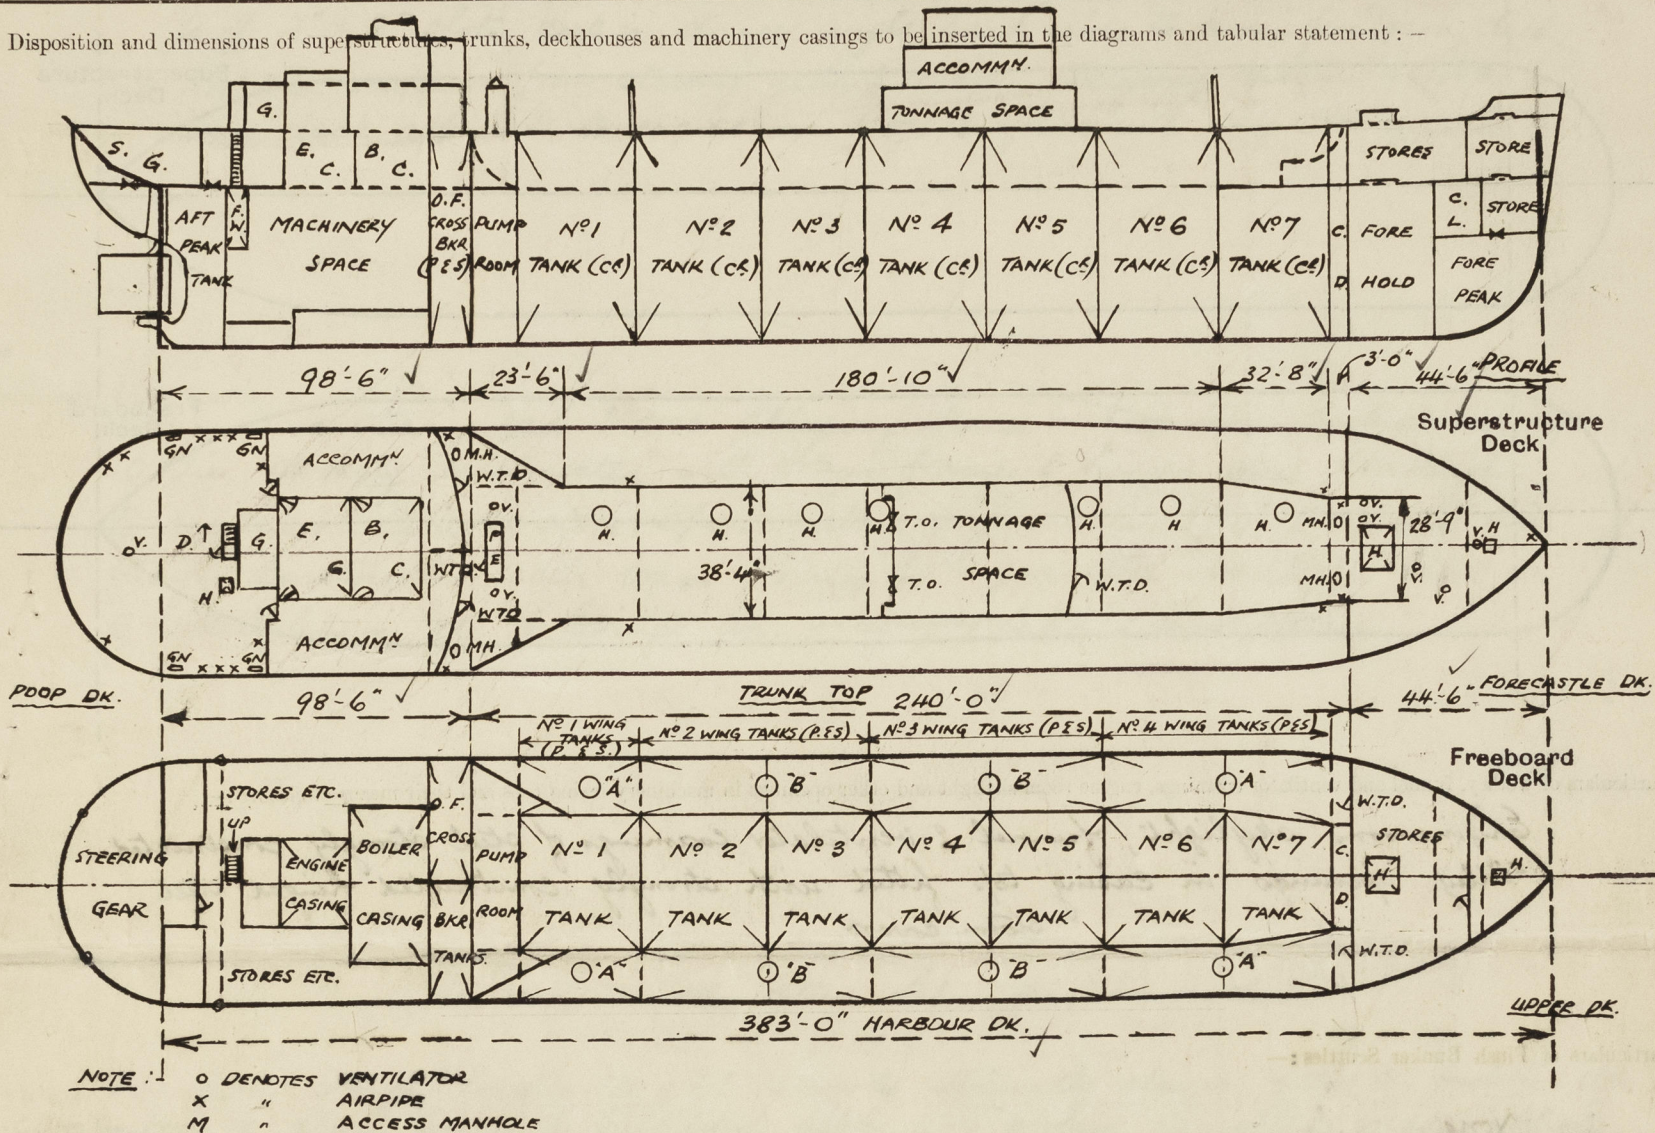 Disposition and dimensions of superstructures, trunks, deckhouses and machinery casings to be inserted in the diagrams and tabular statement : —
ACCOMMN.
TONNAGE SPACE
G.
S. G.
E. C.
B. C.
STORES
STORE
AFT PEAK TANK
F. W.
MACHINERY SPACE
O.F. CROSS BKR (P&S)
PUMP ROOM
No 1 TANK (CR)
No 2 TANK (CR)
No 3 TANK (CR)
No 4 TANK (CR)
No 5 TANK (CR)
No 6 TANK (CR)
No 7 TANK (CR)
C. D.
FORE HOLD
C. L.
STORE
FORE PEAK
98'-6" 23'-6" 180'-10" 32'-8" 3'-0" 44'-6" PROFILE
Superstructure
Deck
GN GN
ACCOMMN
M.H.
W.T.D
V.
V. D. G. E. B.
G. C.
H.
W.T.D
P E
V.
H. H. H. H. H. H. H.
T.O. TONNAGE
SPACE
T.O.
W.T.D.
38'-4"
MH.
V.
V.
H
28'-9"
V. H
MH.
V.
V.
ACCOMMN
WTD
MH.
GN GN
POOP DK.
98'-6"
TRUNK TOP 240'-0"
44'-6" FORECASTLE DK.
No 1 WING
TANKS
(P. & S.)
No 2 WING TANKS (P.&S)
No 3 WING TANKS (P&S)
No 4 WING TANKS (P&S)
Freeboard
Deck
STORES ETC.
UP
STEERING
GEAR
ENGINE
CASING
BOILER
CASING
O.F.
CROSS
BKR
TANKS.
PUMP
ROOM
"A" "B" "B" "A"
No 1 TANK
No 2 TANK
No 3 TANK
No 4 TANK
No 5 TANK
No 6 TANK
No 7 TANK
C. D.
W.T.D.
STORES
H
H.
W.T.D.
STORES ETC.
"A" "B" "B" "A"
383'-0" HARBOUR DK.
UPPER DK.
NOTE :- o DENOTES VENTILATOR
x " AIRPIPE
M " ACCESS MANHOLE